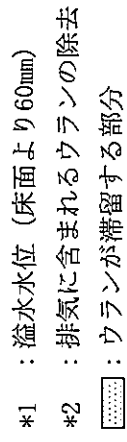 *1 : 溢水水位 (床面より60mm)
*2 : 排気に含まれるウランの除去
: ウランが滞留する部分